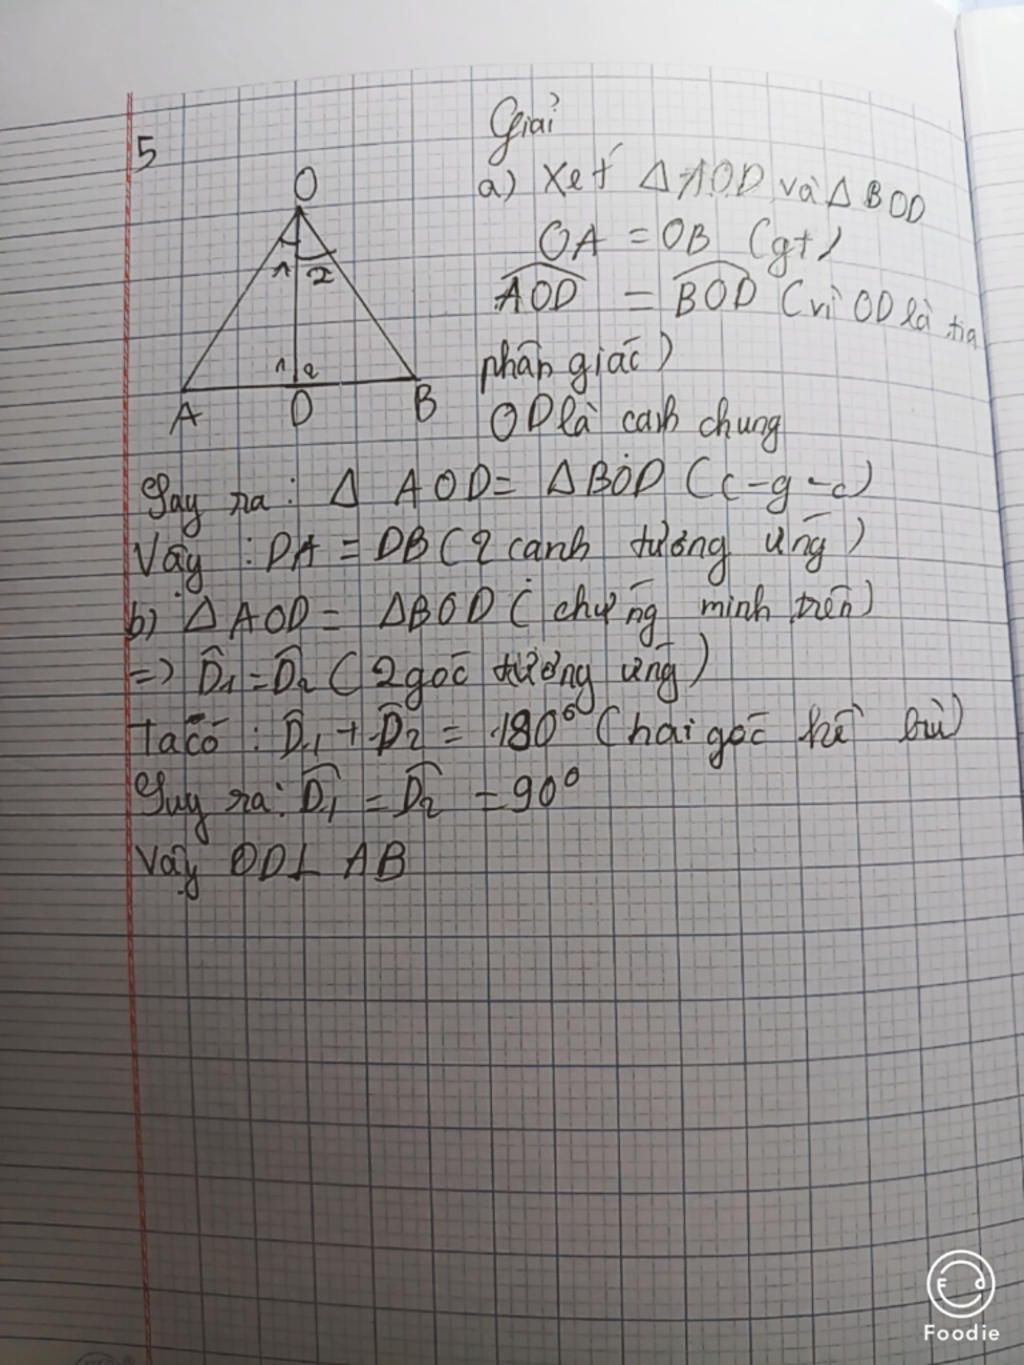 5
Giải
O
1 2
1 2
A D B
a) Xét Δ AOD và Δ BOD
OA = OB (gt)
AOD = BOD (vì OD là tia
phân giác)
OD là cạnh chung
Suy ra: Δ AOD = ΔBOD (c-g-c)
Vậy : DA = DB (2 cạnh tương ứng)
b) ΔAOD = ΔBOD (chứng minh trên)
=> D̂1 = D̂2 (2 góc tương ứng)
Ta có : D̂1 + D̂2 = 180° (hai góc kề bù)
Suy ra: D̂1 = D̂2 = 90°
Vậy OD⊥ AB
Fd
Foodie